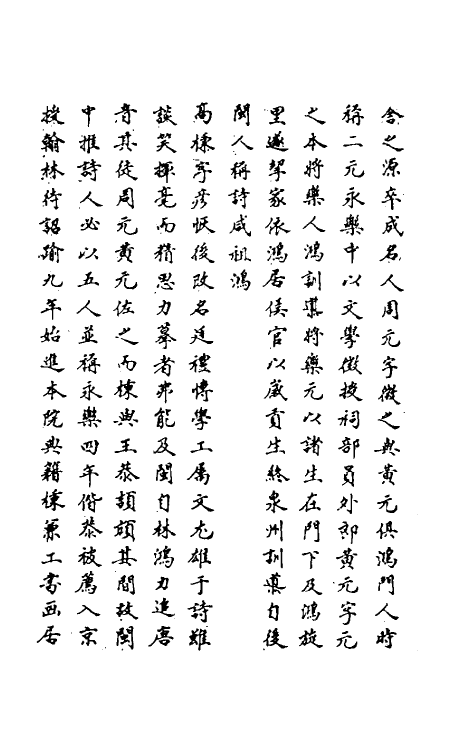 舍之源卒成名人周元字微之與黃元俱鴻門人時
稱二元永樂中以文學徵授祠部員外郎黃元字元
之本將樂人鴻訓導將樂元以諸生在門下及鴻旋
里遂挈家依鴻居侯官以歲貢生終泉州訓導自後
閩人稱詩咸祖鴻
高棅字彦恢後改名廷禮博學工属文尤雄于詩雖
談笑揮毫而精思力摹者弗能及閩自林鴻力追唐
音其徒周元黃元佐之而棅與王恭頡頏其間故閩
中推詩人必以五人並稱永樂四年偕恭被薦入京
授翰林待詔踰九年始進本院典籍棅兼工書画居